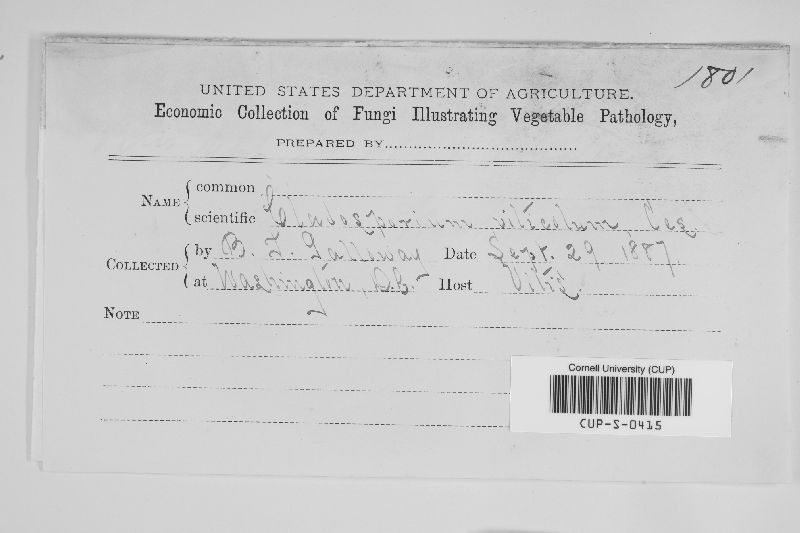 1801
UNITED STATES DEPARTMENT OF AGRICULTURE.
Economic Collection of Fungi Illustrating Vegetable Pathology,
PREPARED BY
NAME { common
scientific Cladosporium viticolum, Ces.
COLLECTED { by B. T. Galloway Date Sept. 29 1887
at Washington, D.C. Host Vitis.
NOTE
Cornell University (CUP)
CUP-S-0415